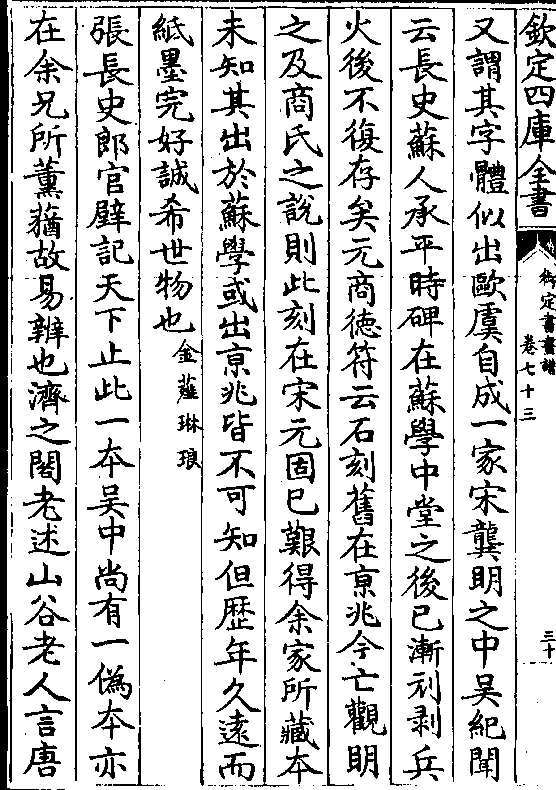 欽定四庫全書
御定書畫譜
卷七十三
三十
又謂其字體似出歐虞自成一家宋龔明之中吳紀聞
云長史蘇人承平時碑在蘇學中堂之後已漸刓剥兵
火後不復存矣元商德符云石刻舊在京兆今亡觀明
之及商氏之說則此刻在宋元固已艱得余家所藏本
未知其出於蘇學或出京兆皆不可知但歷年久遠而
紙墨完好誠希世物也金薤琳琅
張長史郎官壁記天下止此一本吳中尚有一偽本亦
在余兄所薰蕕故易辨也濟之閣老述山谷老人言唐